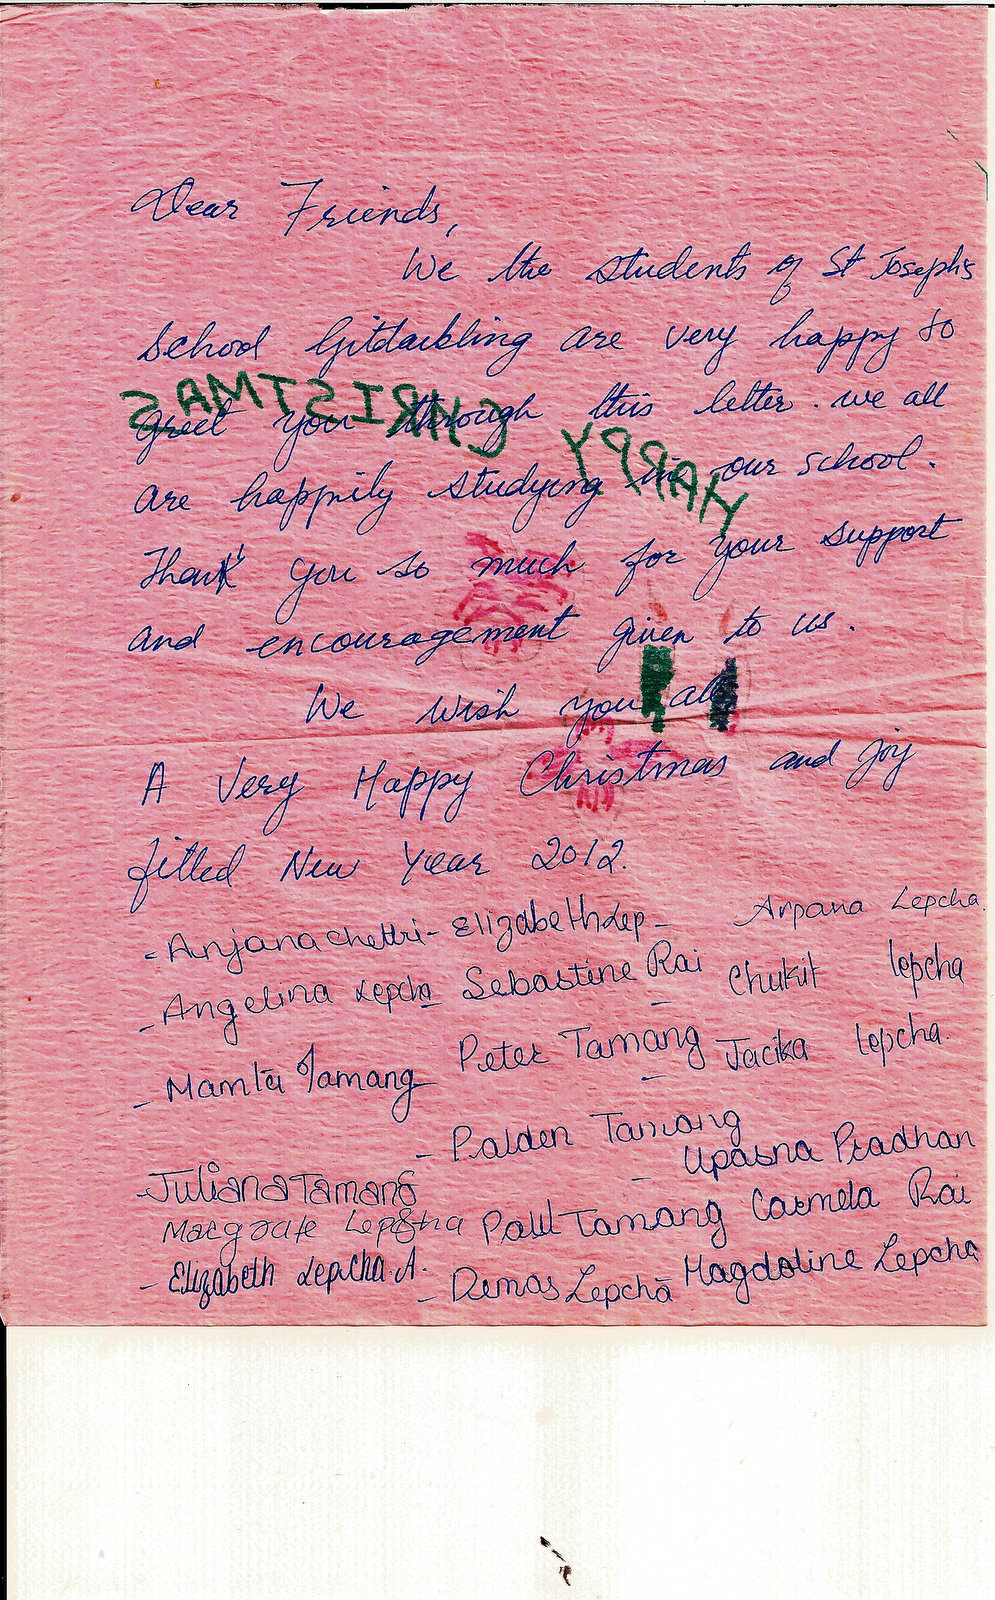 Dear Friends,
We the students of St Joseph's
school Gitdarbling are very happy to
greet you through this letter. we all
are happily studying in our school.
Thank you so much for your support
and encouragement given to us.
We wish you all
A Very Happy Christmas and Joy
filled New Year 2012.
- Anjana chettri - Elizabeth Lep - Arpana Lepcha
- Angelina Lepcha - Sebastine Rai - Chukit Lepcha
- Mamta Tamang - Peter Tamang - Jacika Lepcha
- Palden Tamang
- Upasna Pradhan
- Juliana Tamang
Margrate Lepcha Paul Tamang Carmela Rai
- Elizabeth Lepcha.A. - Demas Lepcha Magdoline Lepcha
HAPPY CHRISTMAS